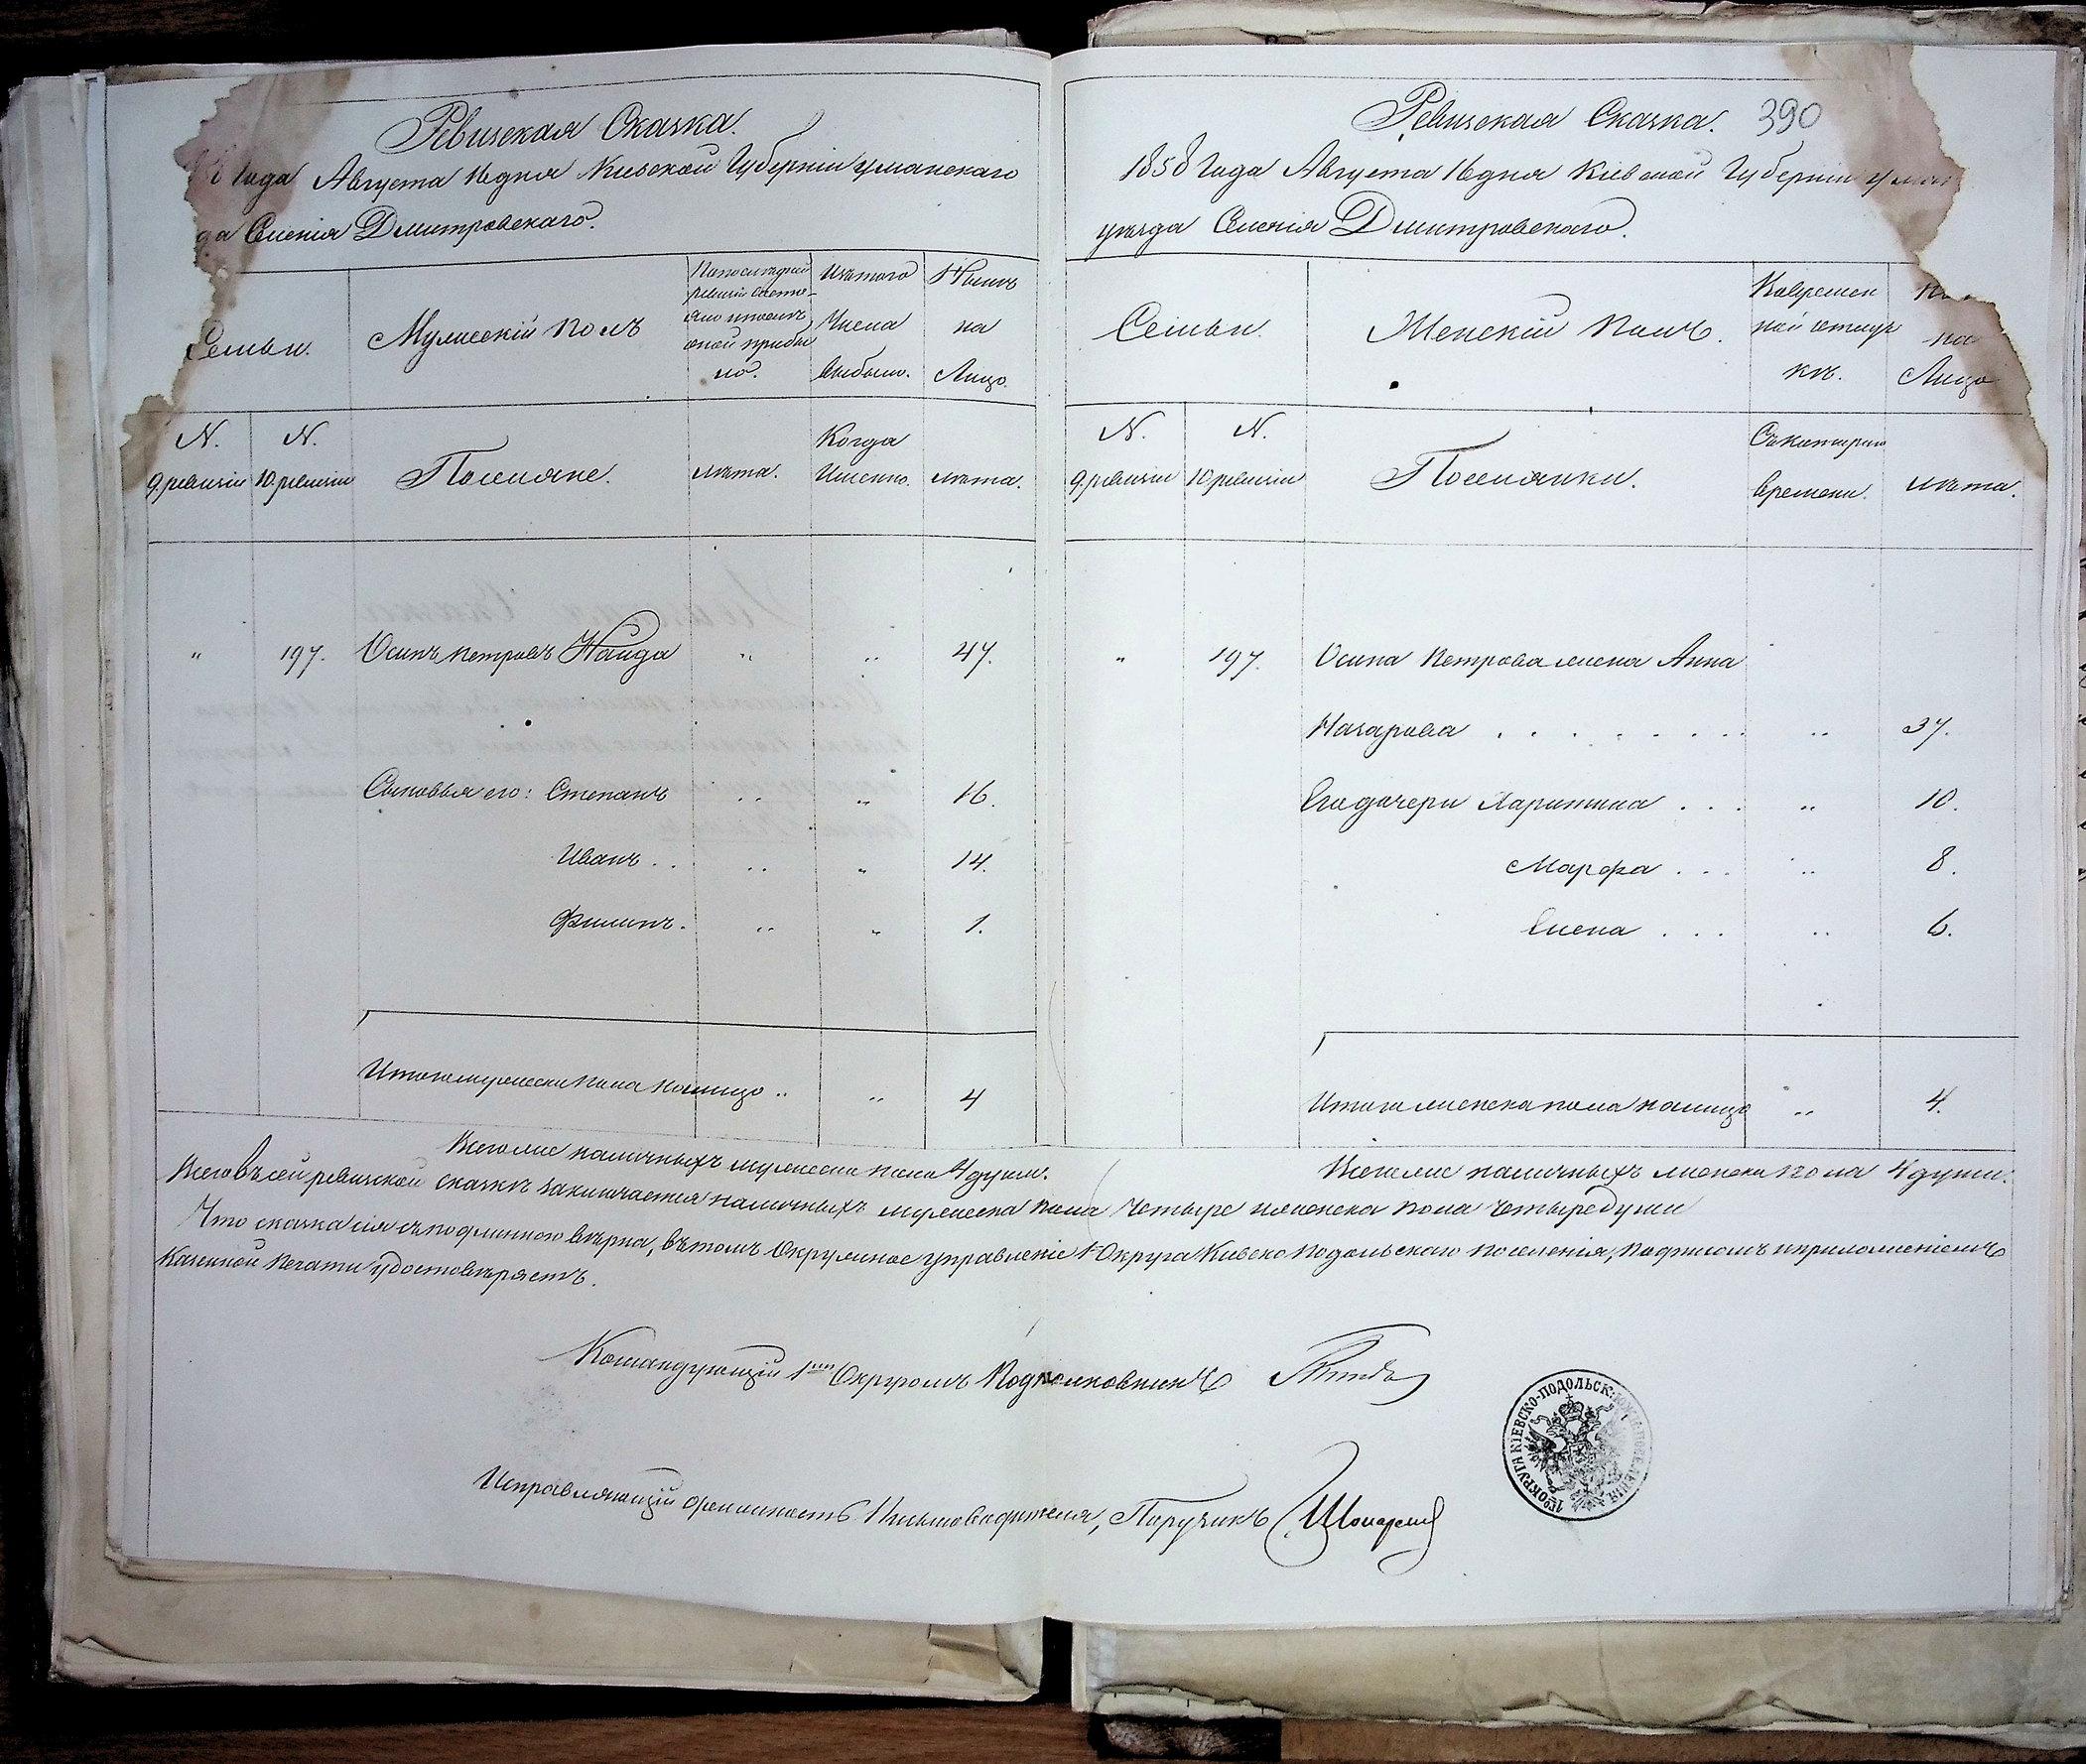 Ревизская Сказка.
Года Августа 16 дня Кіевской Губерніи Уманскаго
да Селенія Дмитровскаго.
Семьи.
Мужескій полъ
По последней ревизіи состояло и после оной прибыло.
Изътого Числа выбыло.
Нынѣ на Лицо.
N. 9 ревизіи
N. 10 ревизіи
Поселяне.
лѣта.
Когда Именно.
лѣта.
" 197. Осипъ Петровъ Найда " " 47.
Сыновья его: Степанъ " " 16.
Иванъ . . " " 14.
Филипъ. " " 1.
Итого мужеска пола налицо " " 4
Ревизская Сказка. 390
1858 Года Августа 16 дня Кіевской Губерніи Уман
уѣзда Селенія Дмитровскаго.
Семьи.
Женскій полъ.
Во временной отлучкѣ.
На Лицо
N. 9. ревизіи
N. 10 ревизіи
Поселянки.
Съ котораго времени.
лѣта.
" 197. Осипа Петрова жена Анна
Назарова . . . . . . . . . " 37.
Его дочери Харитина . . . " 10.
Марфа . . . " 8.
Елена . . . " 6.
Итого женска пола налицо " 4.
Всего же наличныхъ мужеска пола 4 душ.
Всего же наличныхъ женска пола 4 души.
Всего въ сей ревизской сказкѣ заключается наличныхъ мужеска пола четыре и женска пола четыре души
Что сказка сія съ подлинною вѣрна, въ томъ Окружное Управленіе 1 Округа Кіевско Подольскаго поселенія, подписомъ и приложеніемъ
Казенной печати удостовѣряетъ.
Командующій 1мъ Округомъ Подполковникъ
Исправляющій должность Письмоводителя, Поручикъ
1го ОКРУГА КІЕВСКО-ПОДОЛЬСК: